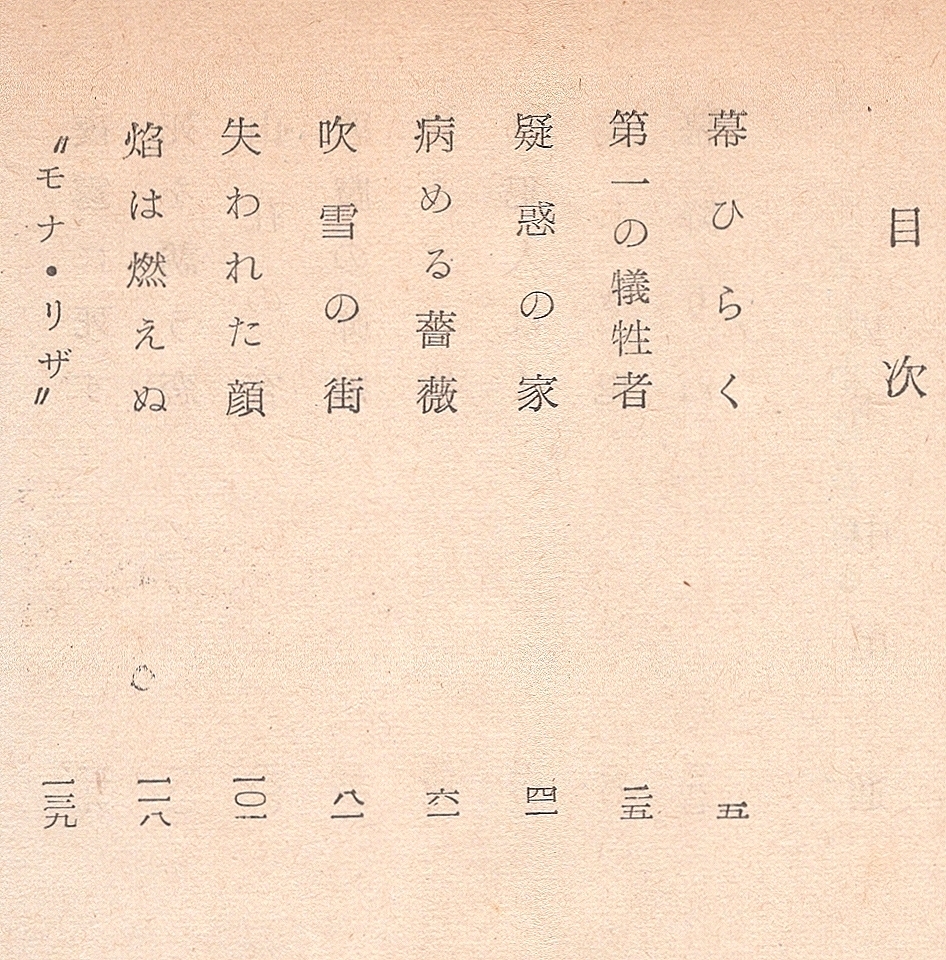 目次
幕ひらく 五
第一の犠牲者 二五
疑惑の家 四一
病める薔薇 六一
吹雪の街 八一
失われた顔 一〇一
焰は燃えぬ 一一八
〃モナ・リザ〃 一三九